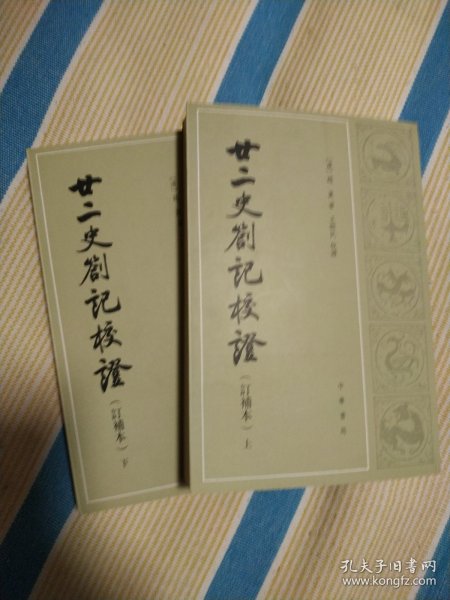 廿二史劄記校證
（訂補本）上
〔清〕趙翼著 王樹民校證
中華書局
廿二史劄記校證
（訂補本）下
〔清〕
孔夫子旧书网
www.kongfz.com